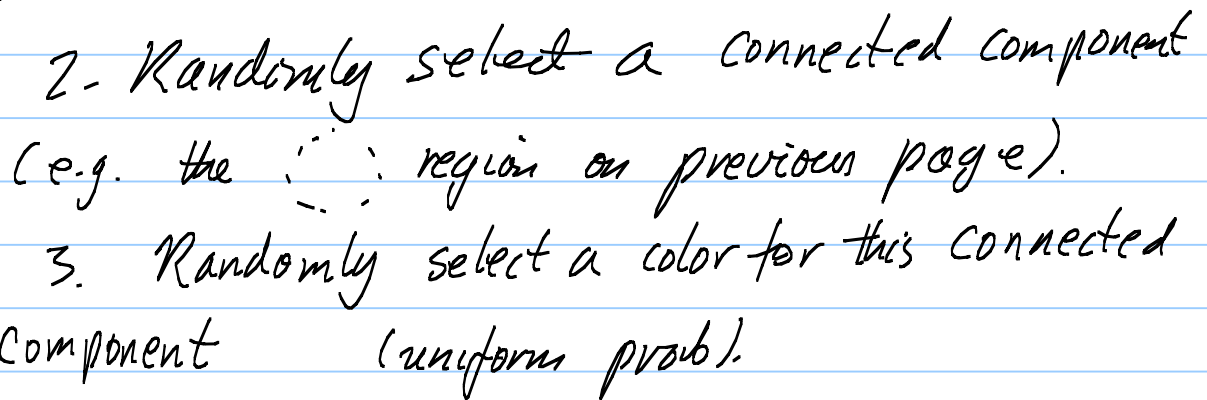 2. Randomly select a connected component
(e.g. the region on previous page).
3. Randomly select a color for this connected
component (uniform prob).